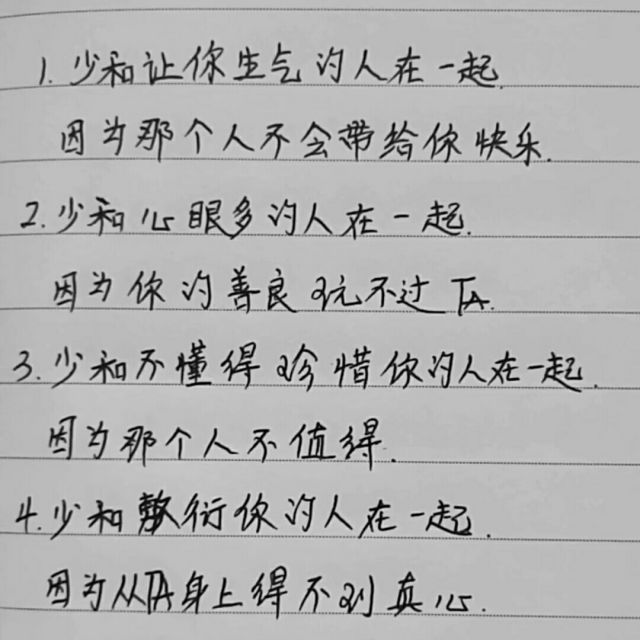 1. 少和让你生气的人在一起.
因为那个人不会带给你快乐.
2. 少和心眼多的人在一起.
因为你的善良玩不过TA.
3. 少和不懂得珍惜你的人在一起.
因为那个人不值得.
4. 少和敷衍你的人在一起.
因为从TA身上得不到真心.